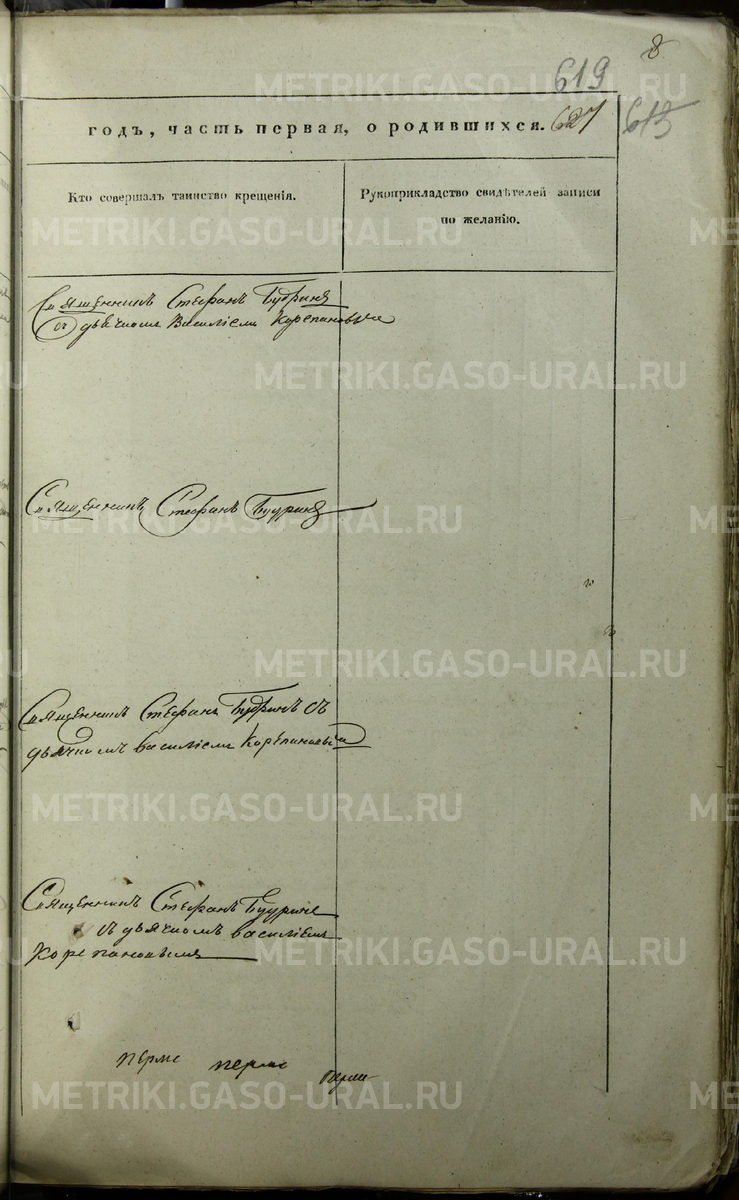 8
619
годъ, часть первая, о родившихся. 627
613
Кто совершалъ таинство крещенія.
Рукоприкладство свидѣтелей записи
по желанію.
Священникъ Стефанъ Будринъ
съ дьячкомъ Василіемъ Корепановымъ
Священникъ Стефанъ Будринъ
Священникъ Стефанъ Будринъ съ
дьячкомъ Василіемъ Корепановы
Священникъ Стефанъ Будринъ
съ дьячкомъ Василіемъ
Корепановымъ
METRIKI.GASO-URAL.RU